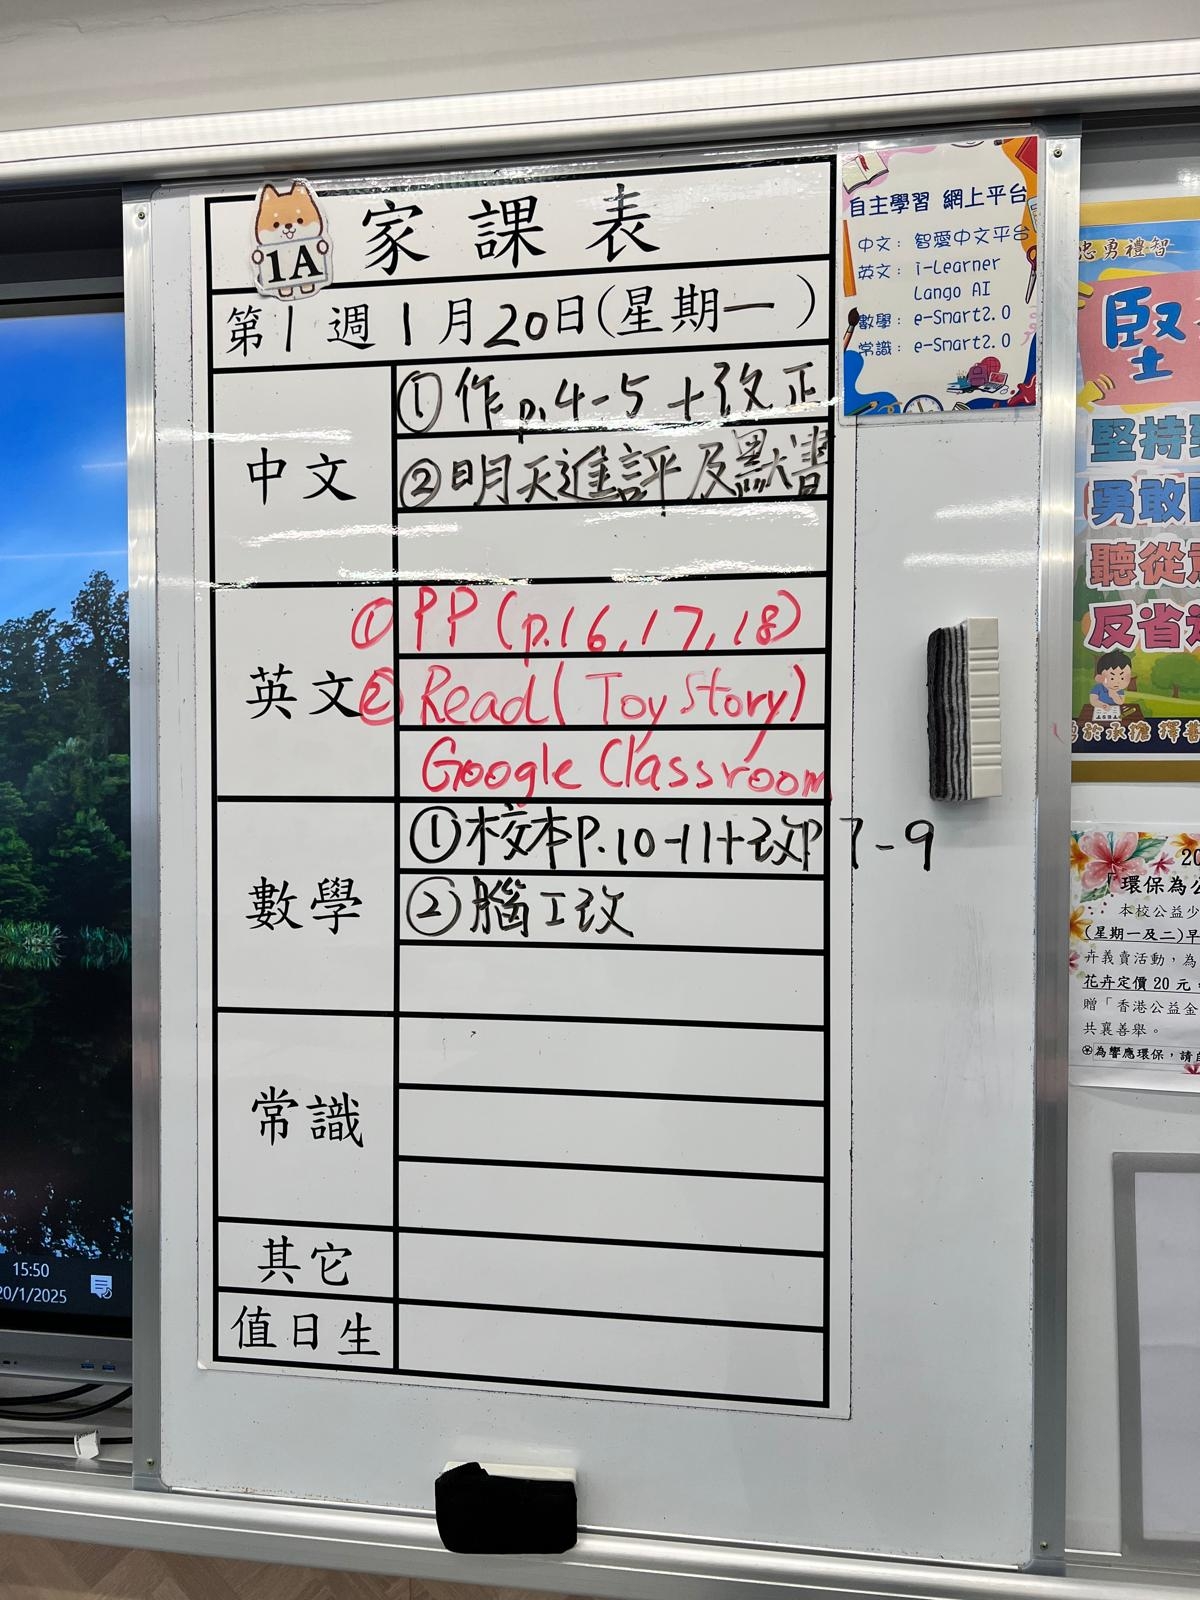 家課表
1A
第1週1月20日(星期一)
中文
①作p.4-5+改正
②明天進評及默書
英文
①PP(p.16,17,18)
②Read(Toy Story)
Google Classroom
數學
①校本P.10-11+改P7-9
②腦工改
常識
其它
值日生
自主學習 網上平台
中文：智愛中文平台
英文：i-Learner
Lango AI
數學：e-Smart2.0
常識：e-Smart2.0
忠勇禮智
堅
堅持
勇敢
聽從
反省
於承擔 擇善
20
「環保為公
本校公益少
(星期一及二)早
卉義賣活動，為
花卉定價20元
贈「香港公益金
共襄善舉。
為響應環保，請自
15:50
20/1/2025